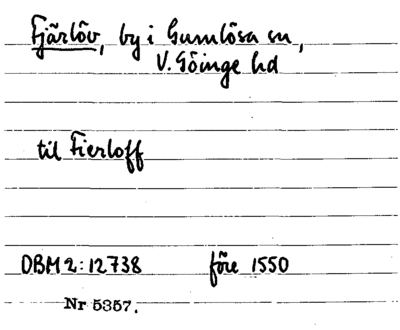 Fjärlöv, by i Gumlösa sn,
V. Göinge hd
til Fierloff
DBM 2:12738 före 1550
Nr 5357.